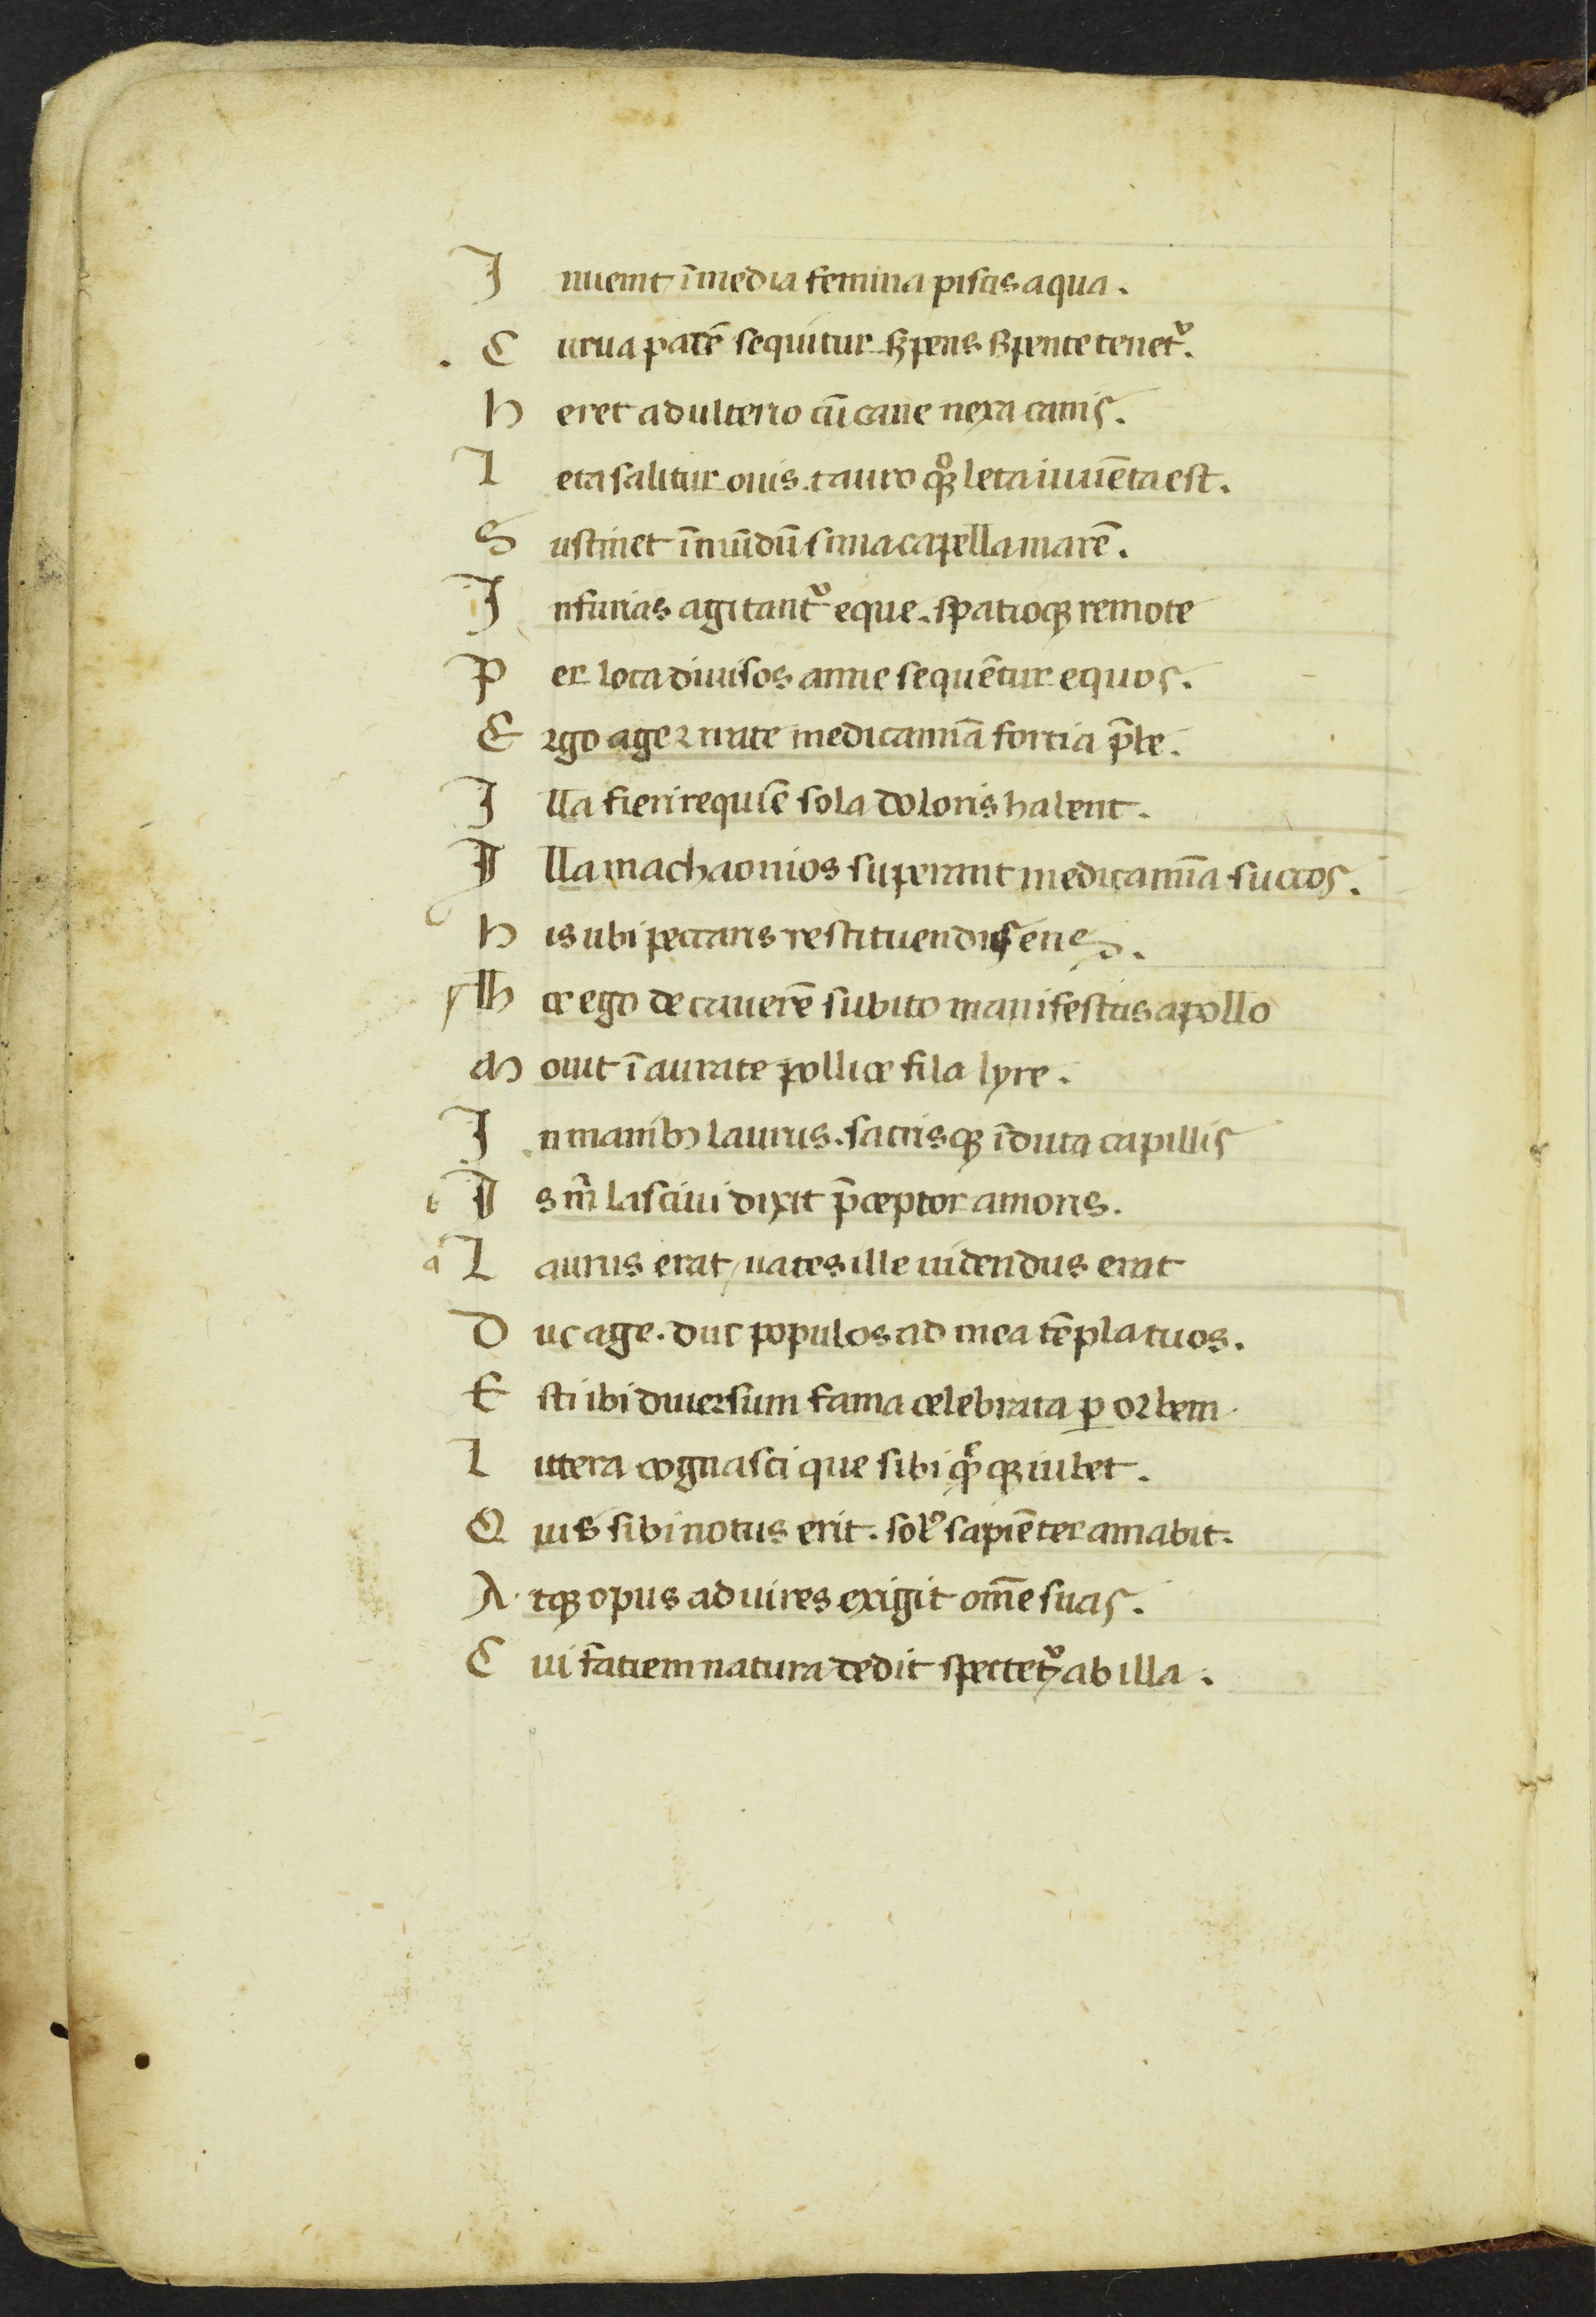 I nuenit i̅ media femina piscis aqua.
C erua pare̅ sequitur serpens serpente tenet᷑.
h eret adulterio cu̅ cane nexa canis.
L eta salitur ouis. tauro qꝫ leta iuue̅ca est.
S ustinet i̅mu̅du̅ sima capella mare̅.
I n furias agitant᷑ eque. spatioqꝫ remote
P er loca diuisos amne seque̅tur equos.
E rgo age ⁊ irate medicamina̅ fortia p̅be.
I lla fieri requie̅ sola doloris habent.
I lla machaonios superant medicami̅a succos.
h is ubi peccaris restituendus eris.
h ec ego de cauere̅ subito manifestus apollo
M ouit i̅ aurate pollice fila lyre.
I n manibꝫ laurus. sacrisqꝫ i̅duta capillis
b I s m̅ lasciui dixit p̅ceptor amoris.
a L aurus erat / uates ille uidendus erat
D uc age. duc populos ad mea te̅pla tuos.
E st ibi diuersum fama celebrata ꝑ orbem
L ittera cognosci que sibi q̅qꝫ iubet.
Q ui sibi notus erit. sol᷒ sapie̅ter amabit.
A tqꝫ opus ad uires exigit om̅e suas.
C ui faciem natura dedit spectet᷑ ab illa.